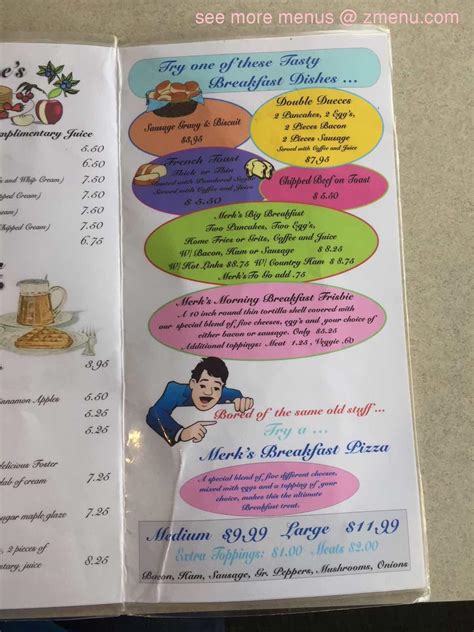 see more menus @ zmenu.com
e's
mplimentary Juice
5.50
6.50
s and Whip Cream) 7.50
d Cream) 7.50
hipped Cream) 7.50
6.75
3.95
innamon Apples 5.50
5.25
5.25
delicious Foster
lob of cream 7.25
ugar maple glaze 7.25
, 2 pieces of
ntary, juice 8.25
Try one of these Tasty
Breakfast Dishes ...
Sausage Gravy & Biscuit
$3.95
Double Dueces
2 Pancakes, 2 Egg's,
2 Pieces Bacon
2 Pieces Sausage
Served with Coffee and Juice
$7.95
French Toast
Thick or Thin
Dusted with Powdered Sugar
Served with Coffee and Juice
$ 5.50
Chipped Beef on Toast
$ 5.50
Merk's Big Breakfast
Two Pancakes, Two Egg's,
Home Fries or Grits, Coffee and Juice
W/ Bacon, Ham or Sausage $ 8.25
W/ Hot Links $8.75 W/ Country Ham $ 8.75
Merk's To Go add .75
Merk's Morning Breakfast Frisbie
A 10 inch round thin tortilla shell covered with
our special blend of five cheeses, egg's and your choice of
either bacon or sausage. Only $5.25
Additional toppings: Meat 1.25 , Veggie .60
Bored of the same old stuff ...
Try a ...
Merk's Breakfast Pizza
A special blend of five different cheeses,
mixed with eggs and a topping of your
choice, makes this the ultimate
Breakfast treat.
Medium $9.99 Large $11.99
Extra Toppings: $1.00 Meats $2.00
Bacon, Ham, Sausage, Gr. Peppers, Mushrooms, Onions